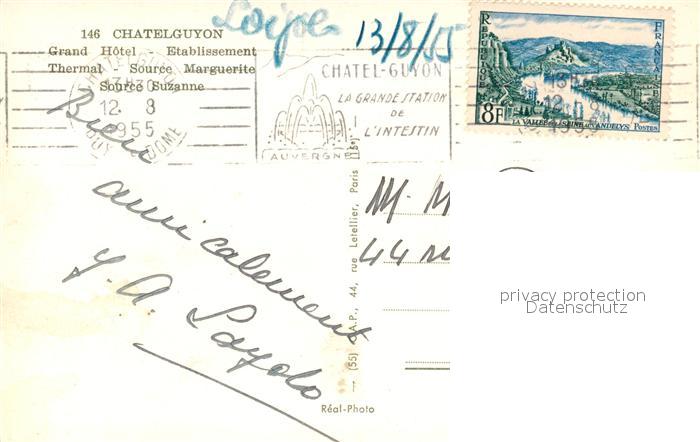 146 CHATELGUYON
Grand Hôtel - Etablissement
Thermal - Source Marguerite
Source Suzanne
13/8/55
13H30
12 8
1955
PUY DE DOME
CHATEL-GUYON
LA GRANDE STATION
DE
L'INTESTIN
AUVERGNE
REPUBLIQUE
FRANÇAISE
8F
LA VALLEE DE LA SEINE AUX ANDELYS POSTES
Bien
amicalement
M. M
44
A.P., 44, rue Letellier, Paris (15e)
Réal-Photo
privacy protection
Datenschutz